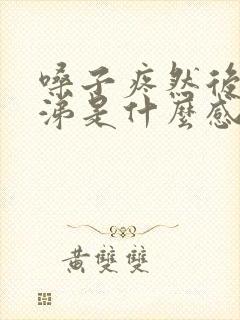 嗓子疼然後
涕是什麼感
黃雙雙